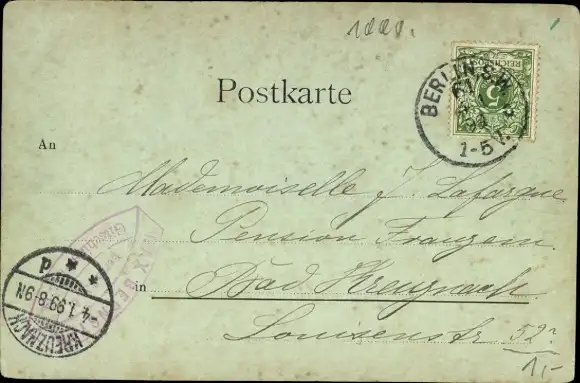 1898.
Postkarte
REICHSPOST
5
BERLIN S.W.
61
1-5 V.
An
Mademoiselle J. Lafargue
Pension Franzem
in Bad Kreuznach
Louisenstr 52
KREUZNACH
4.1.99.8-9N
d
1,-